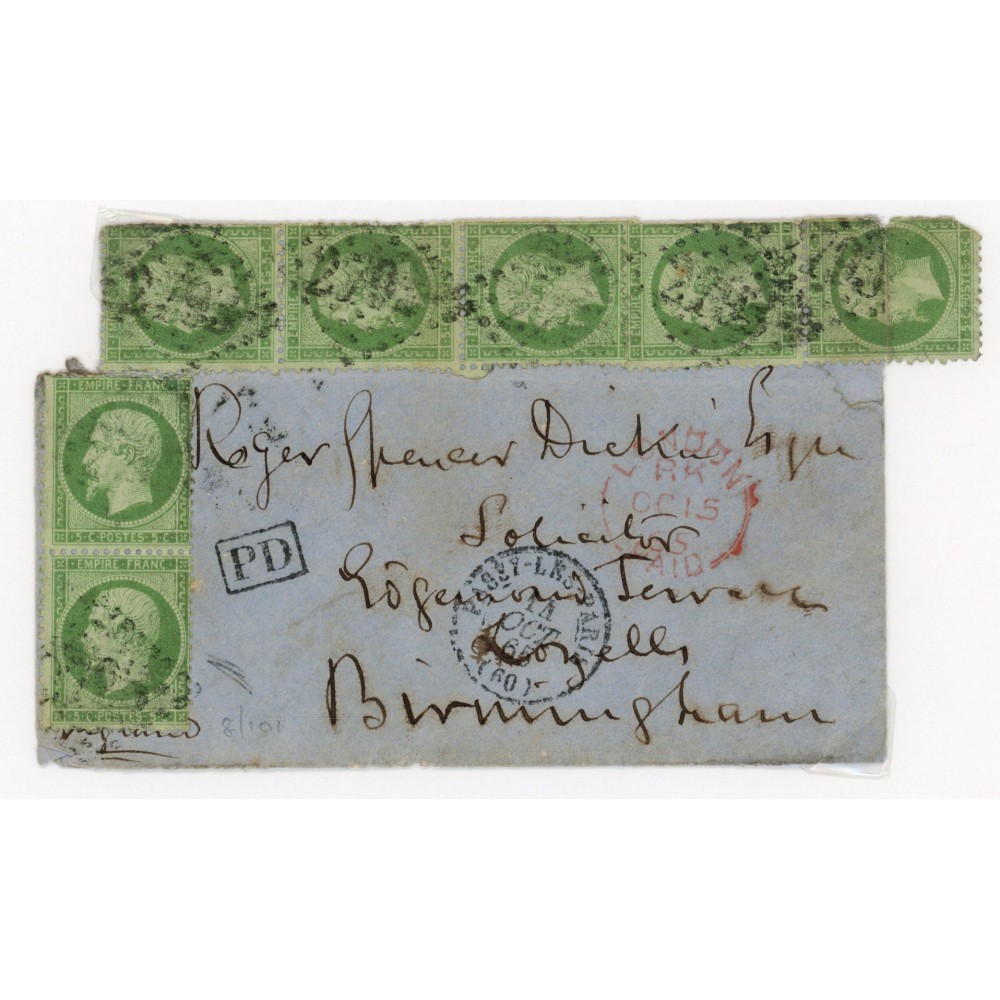 EMPIRE FRANC
5·C·POSTES·5·C·
EMPIRE FRANC
5·C·POSTES·5·C·
Roger Spencer Dickins Esqre
Solicitor
Edgemond Terrace
Lozells
Birmingham
PD
LONDON
RK
OC 15
65
PAID
PASSY-LÈS-PARIS
14
OCT
65
(60)
8/101